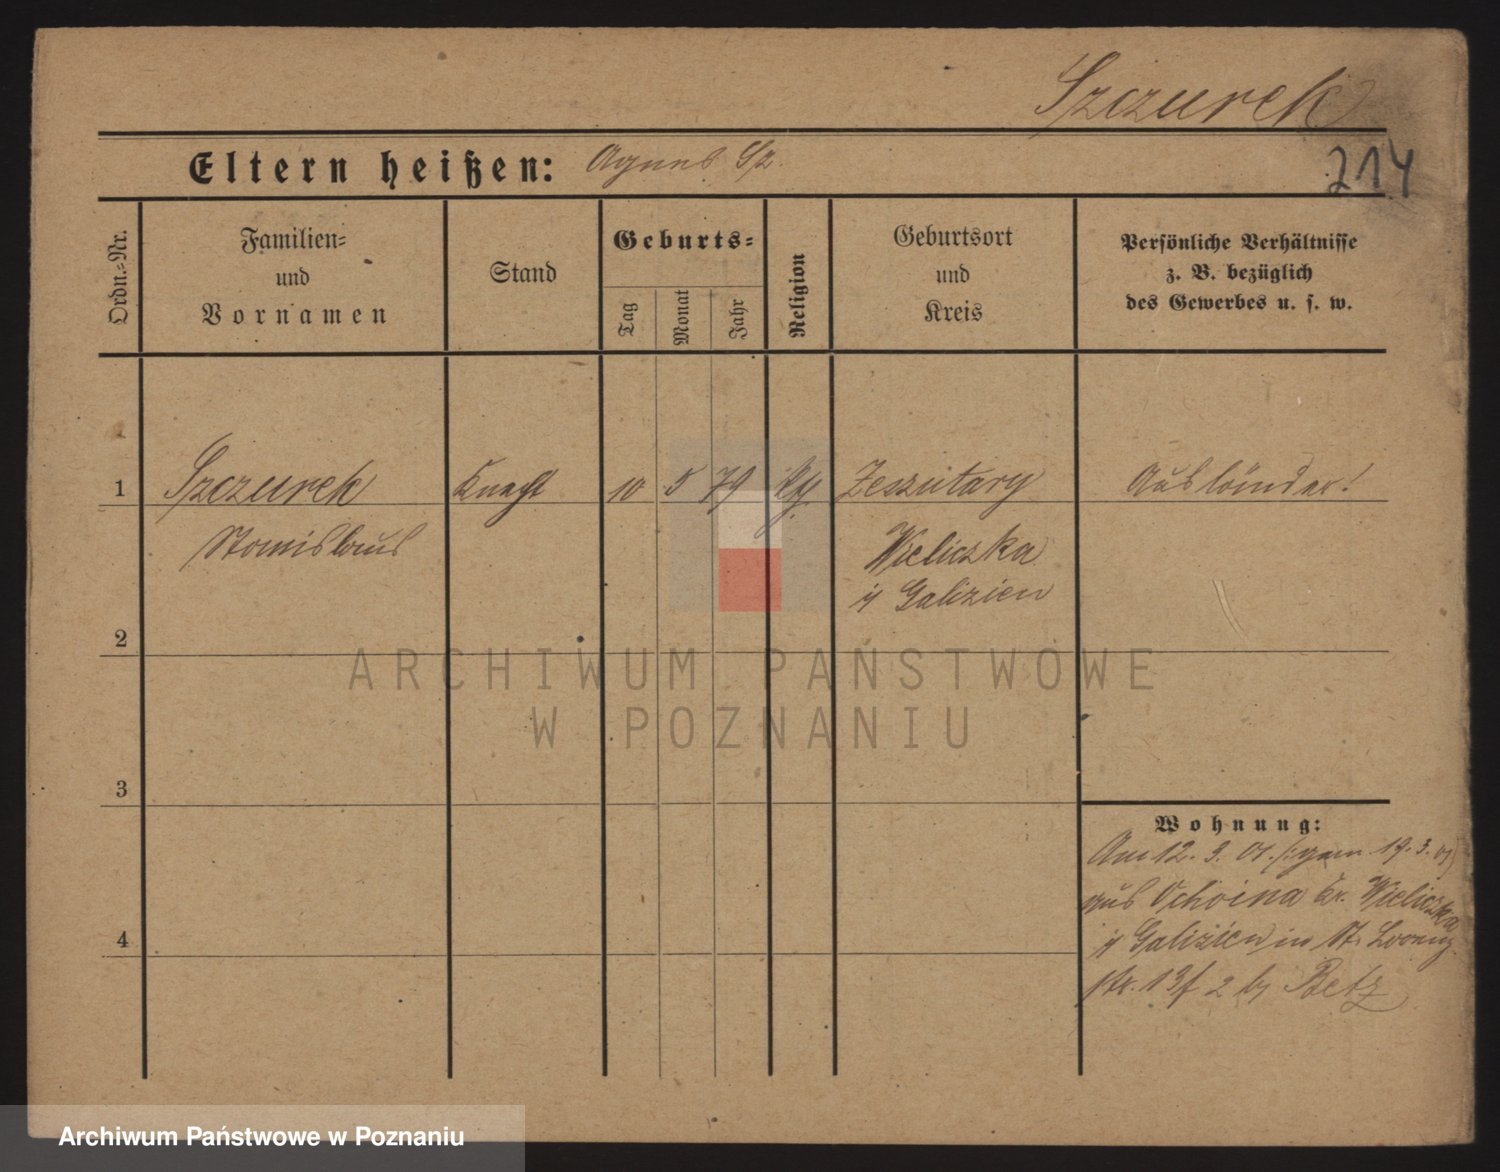 Szczurek
Eltern heißen: Agnes Sz.
214
Ordn.=Nr.
Familien=
und
Vornamen
Stand
Geburts=
Tag
Monat
Jahr
Religion
Geburtsort
und
Kreis
Persönliche Verhältnisse
z. B. bezüglich
des Gewerbes u. s. w.
1 Szczurek Knecht 10 5 79 Ausländer!
Stanislaus
Wieliczka
Galizien
2
ARCHIWUM PAŃSTWOWE
W POZNANIU
3
Wohnung:
Am 12. 3. 01. 19. 3. 01
aus Ochoina Kr. Wieliczka
Galizien in St.
str. 13 Betz
4
Archiwum Państwowe w Poznaniu